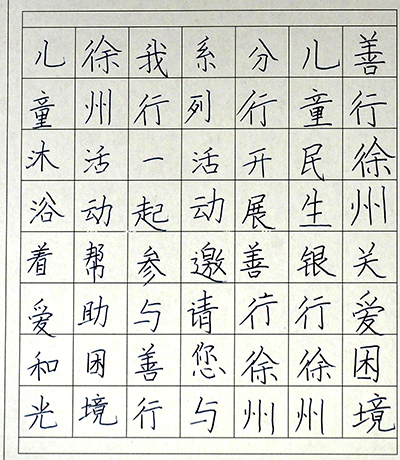 善行徐州关爱困境
儿童民生银行徐州
分行开展善行徐州
系列活动邀请您与
我行一起参与善行
徐州活动帮助困境
儿童沐浴着爱和光